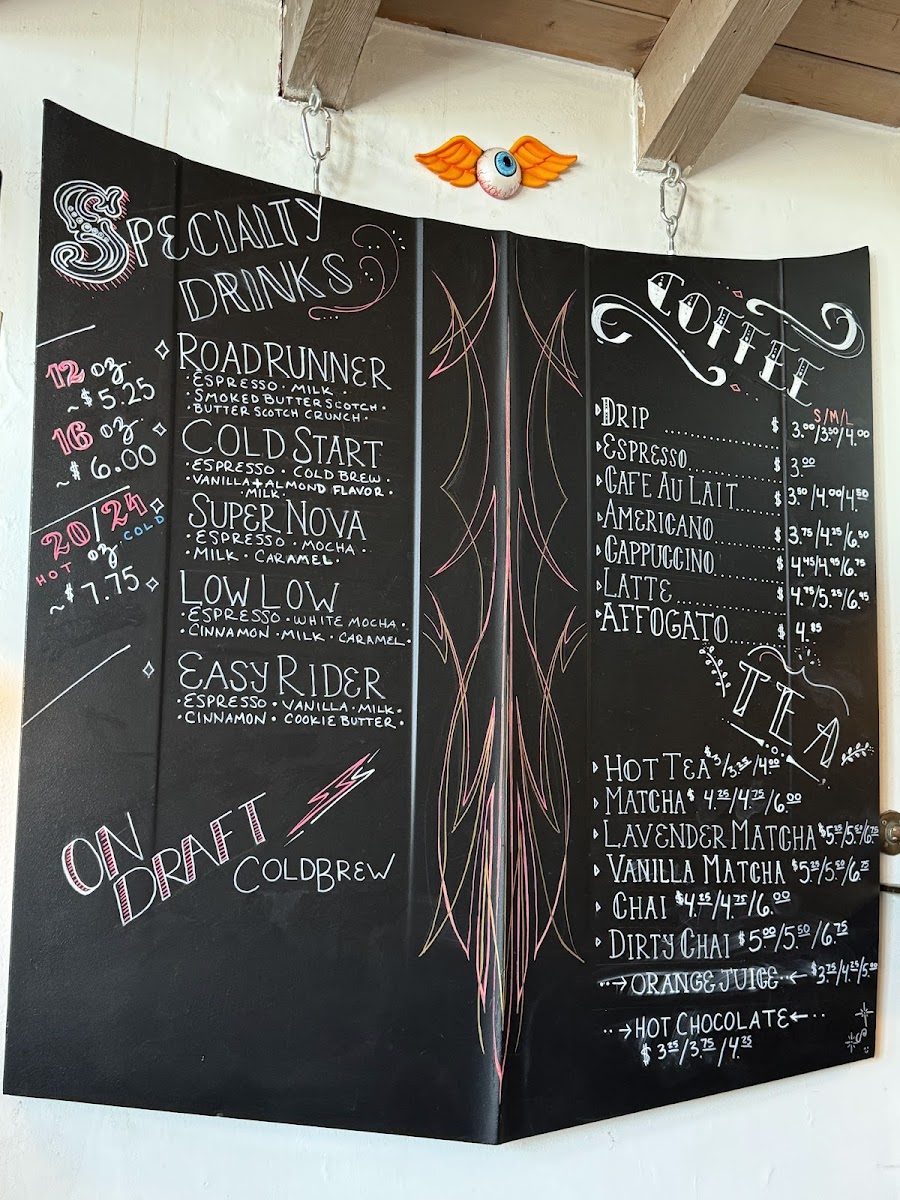 SPECIALTY
DRINKS
12 oz
~$5.25
16 oz
~$6.00
20/24
HOT oz COLD
~$7.75
ROADRUNNER
·ESPRESSO·MILK
·SMOKED BUTTERSCOTCH·
·BUTTERSCOTCH CRUNCH·
COLD START
·ESPRESSO·COLD BREW·
·VANILLA+ALMOND FLAVOR·
·MILK·
SUPER NOVA
·ESPRESSO·MOCHA·
·MILK·CARAMEL·
LOW LOW
·ESPRESSO·WHITE MOCHA·
·CINNAMON·MILK·CARAMEL·
EASY RIDER
·ESPRESSO·VANILLA·MILK·
·CINNAMON·COOKIE BUTTER·
ON
DRAFT
COLDBREW
COFFEE
S/M/L
DRIP $3.00/3.50/4.00
ESPRESSO $3.00
CAFE AU LAIT $3.50/4.00/4.50
AMERICANO $3.75/4.25/6.50
CAPPUCCINO $4.45/4.95/6.75
LATTE $4.75/5.25/6.95
AFFOGATO $4.85
TEA
HOT TEA $3/3.25/4.00
MATCHA $4.25/4.75/6.00
LAVENDER MATCHA $5.25/5.50/6.75
VANILLA MATCHA $5.25/5.50/6.75
CHAI $4.25/4.75/6.00
DIRTY CHAI $5.00/5.50/6.75
··→ORANGE JUICE··← $3.75/4.25/5.00
··→HOT CHOCOLATE←··
$3.25/3.75/4.25